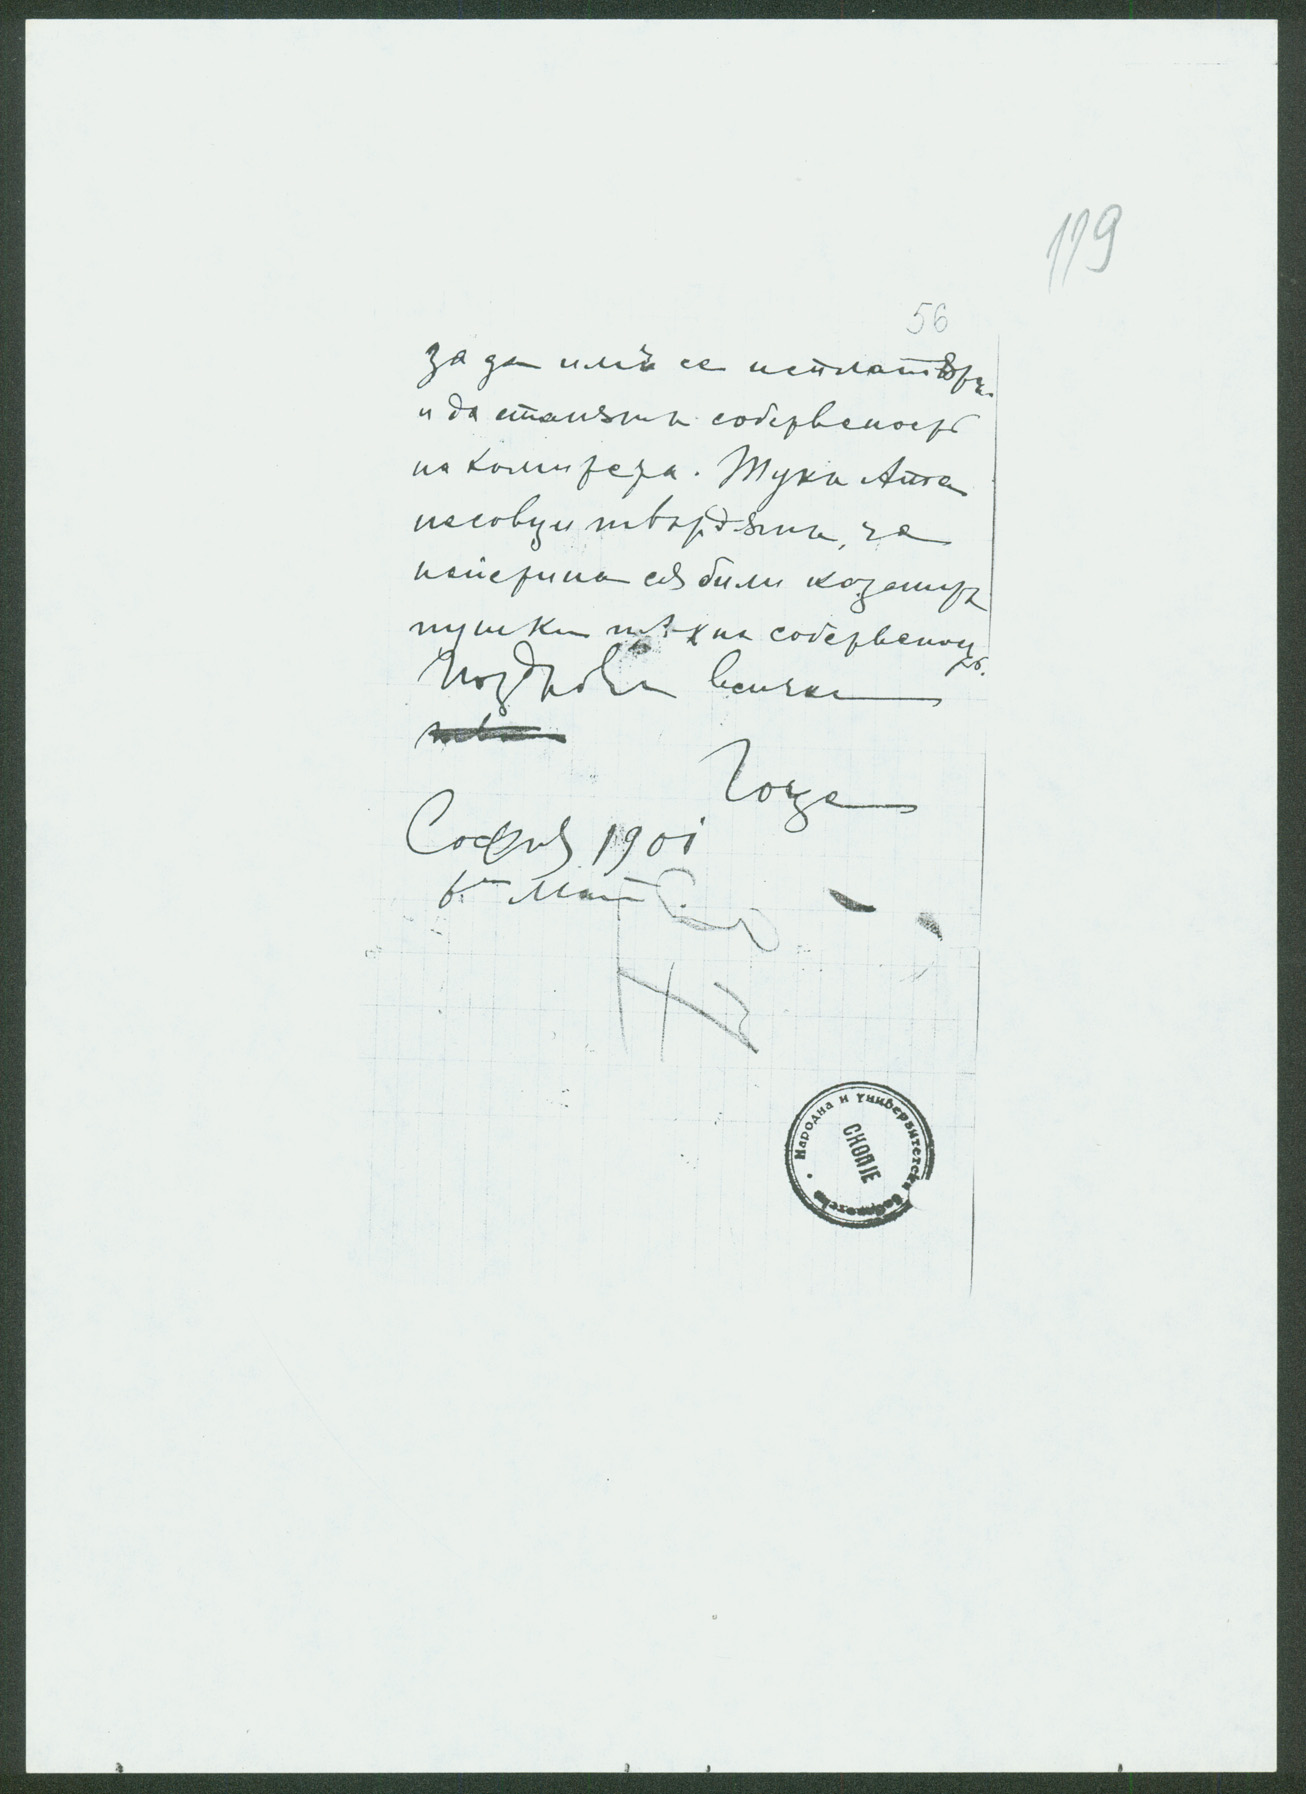 119
56
за да имъ се исплатятъ
и да станатъ собственость
на комитета. Тука Ата
насовци твърдятъ, че
нѣкои си били
пушки тѣхна собственость.
Поздрави всички
Гоце
София 1901
6 Май
Народна и Универзитетска Библиотека
СКОПЈЕ